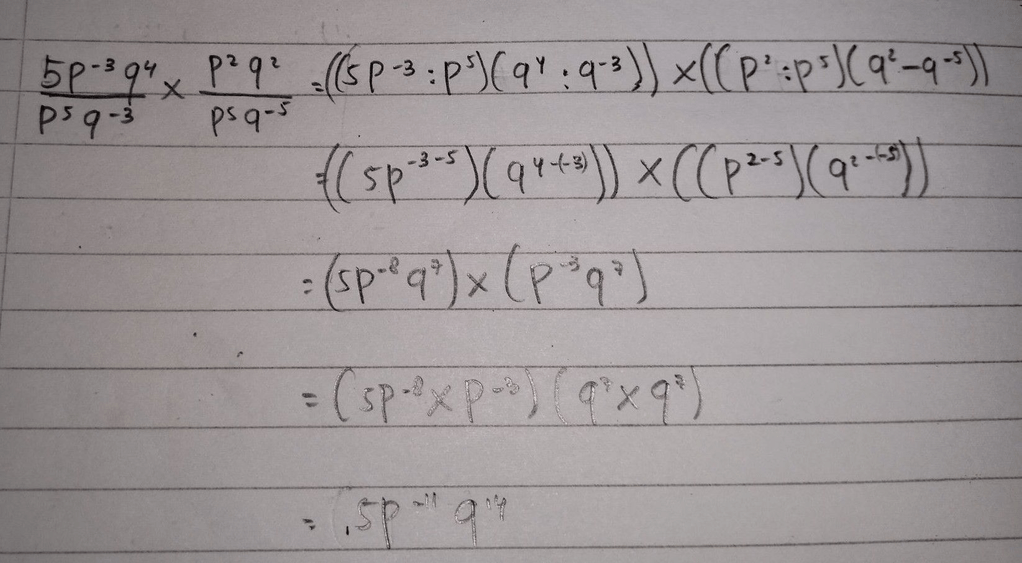 5p⁻³q⁴/p⁵q⁻³ × p²q²/p⁵q⁻⁵ = ((5p⁻³ : p⁵)(q⁴ : q⁻³)) × ((p² : p⁵)(q² – q⁻⁵))
= ((5p⁻³⁻⁵)(q⁴⁻⁽⁻³⁾)) × ((p²⁻⁵)(q²⁻⁽⁻⁵⁾))
= (5p⁻⁸q⁷) × (p⁻³q⁷)
= (5p⁻⁸ × p⁻³)(q⁷ × q⁷)
= 5p⁻¹¹q¹⁴